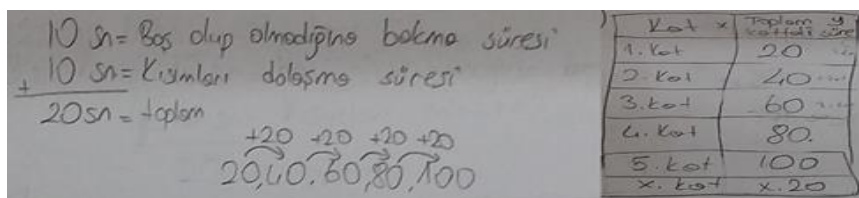 10 sn = Boş olup olmadığına bakma süresi
+ 10 sn = Kısımları dolaşma süresi
20 sn = toplam
+20 +20 +20 +20
20,40,60,80,100
) Kat x Toplam y
katettiği süre
1. kat 20
2. kat 40
3. kat 60
4. kat 80.
5. kat 100
x. kat x.20